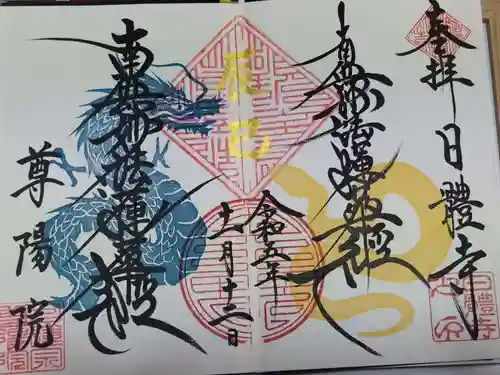 奉拝
日體寺
南無妙法蓮華経
辰巳
令和五年
十一月十二日
南無妙法蓮華経
尊陽院